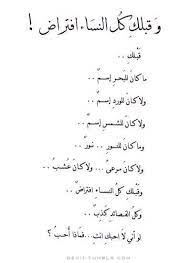 وَقبلكِ كل النساء افتراض !
قَبلك ..
ما كان للبحر إسمٌ ..
ولا كان للورد إسمٌ ..
ولا كان للشمس إسمٌ ..
وما كان للنور .. نورٌ ..
ولا كان مرعىً .. ولا كان عشبٌ ..
وقبلك كل النساء افتراضٌ ..
وكل القصائد كذبٌ ..
لو أني لا احبك انتِ .. فماذا أحب ؟